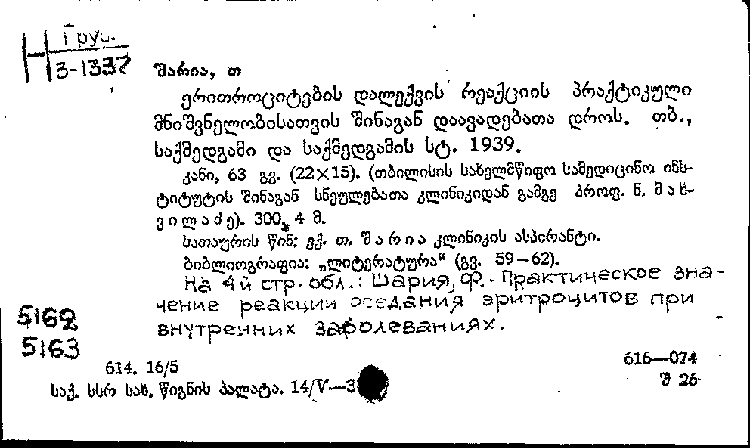 Груз.
Н 3-1337
შარია, თ
ერითროციტების დალექვის რეაქციის პრაქტიკული
მნიშვნელობისათვის შინაგან დაავადებათა დროს. თბ.,
საქმედგამი და საქმედგამის სტ. 1939.
კანი, 63 გვ. (22×15). (თბილისის სახელმწიფო სამედიცინო ინს-
ტიტუტის შინაგან სნეულებათა კლინიკიდან გამგე პროფ. ნ. მ ა ხ-
ვ ი ლ ა ძ ე). 300, 4 მ.
სათაურის წინ: ექ. თ. შ ა რ ი ა კლინიკის ასპირანტი.
ბიბლიოგრაფია: „ლიტერატურა" (გვ. 59—62).
На 4й стр. обл.: Шария, Ф. - Практическое зна-
чение реакции оседания эритроцитов при
внутренних заболеваниях.
5162
5163
614. 16/5
616—074
საქ. სსრ სახ. წიგნის პალატა. 14/V—3
შ 26